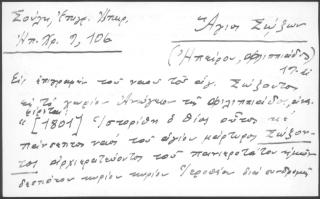 Σούλη, Ἐπιγρ. Ἠπειρ.
Ἠπ. Χρ. 9, 106
Ἅγιος Σώζων
(Ἠπείρου, Φιλιππιάδος)
Εἰς ἐπιγραφὴν τοῦ ναοῦ τοῦ ἁγ. Σώζοντος
εἰς τὸ χωρίον Ἀνώγειον τῆς Φιλιππιάδος,
"[1801] Ἱστορίθη ὁ θῖος οὗτος κὲ
πάνσεπτος ναὸς τοῦ ἁγίου μάρτυρος Σώζον-
τος ἀρχιερατεύοντος τοῦ πανιεροτάτου ἡμῶν
δεσπότου κυρίου κυρίου Ἱεροθέου διὰ συνδρομῆς